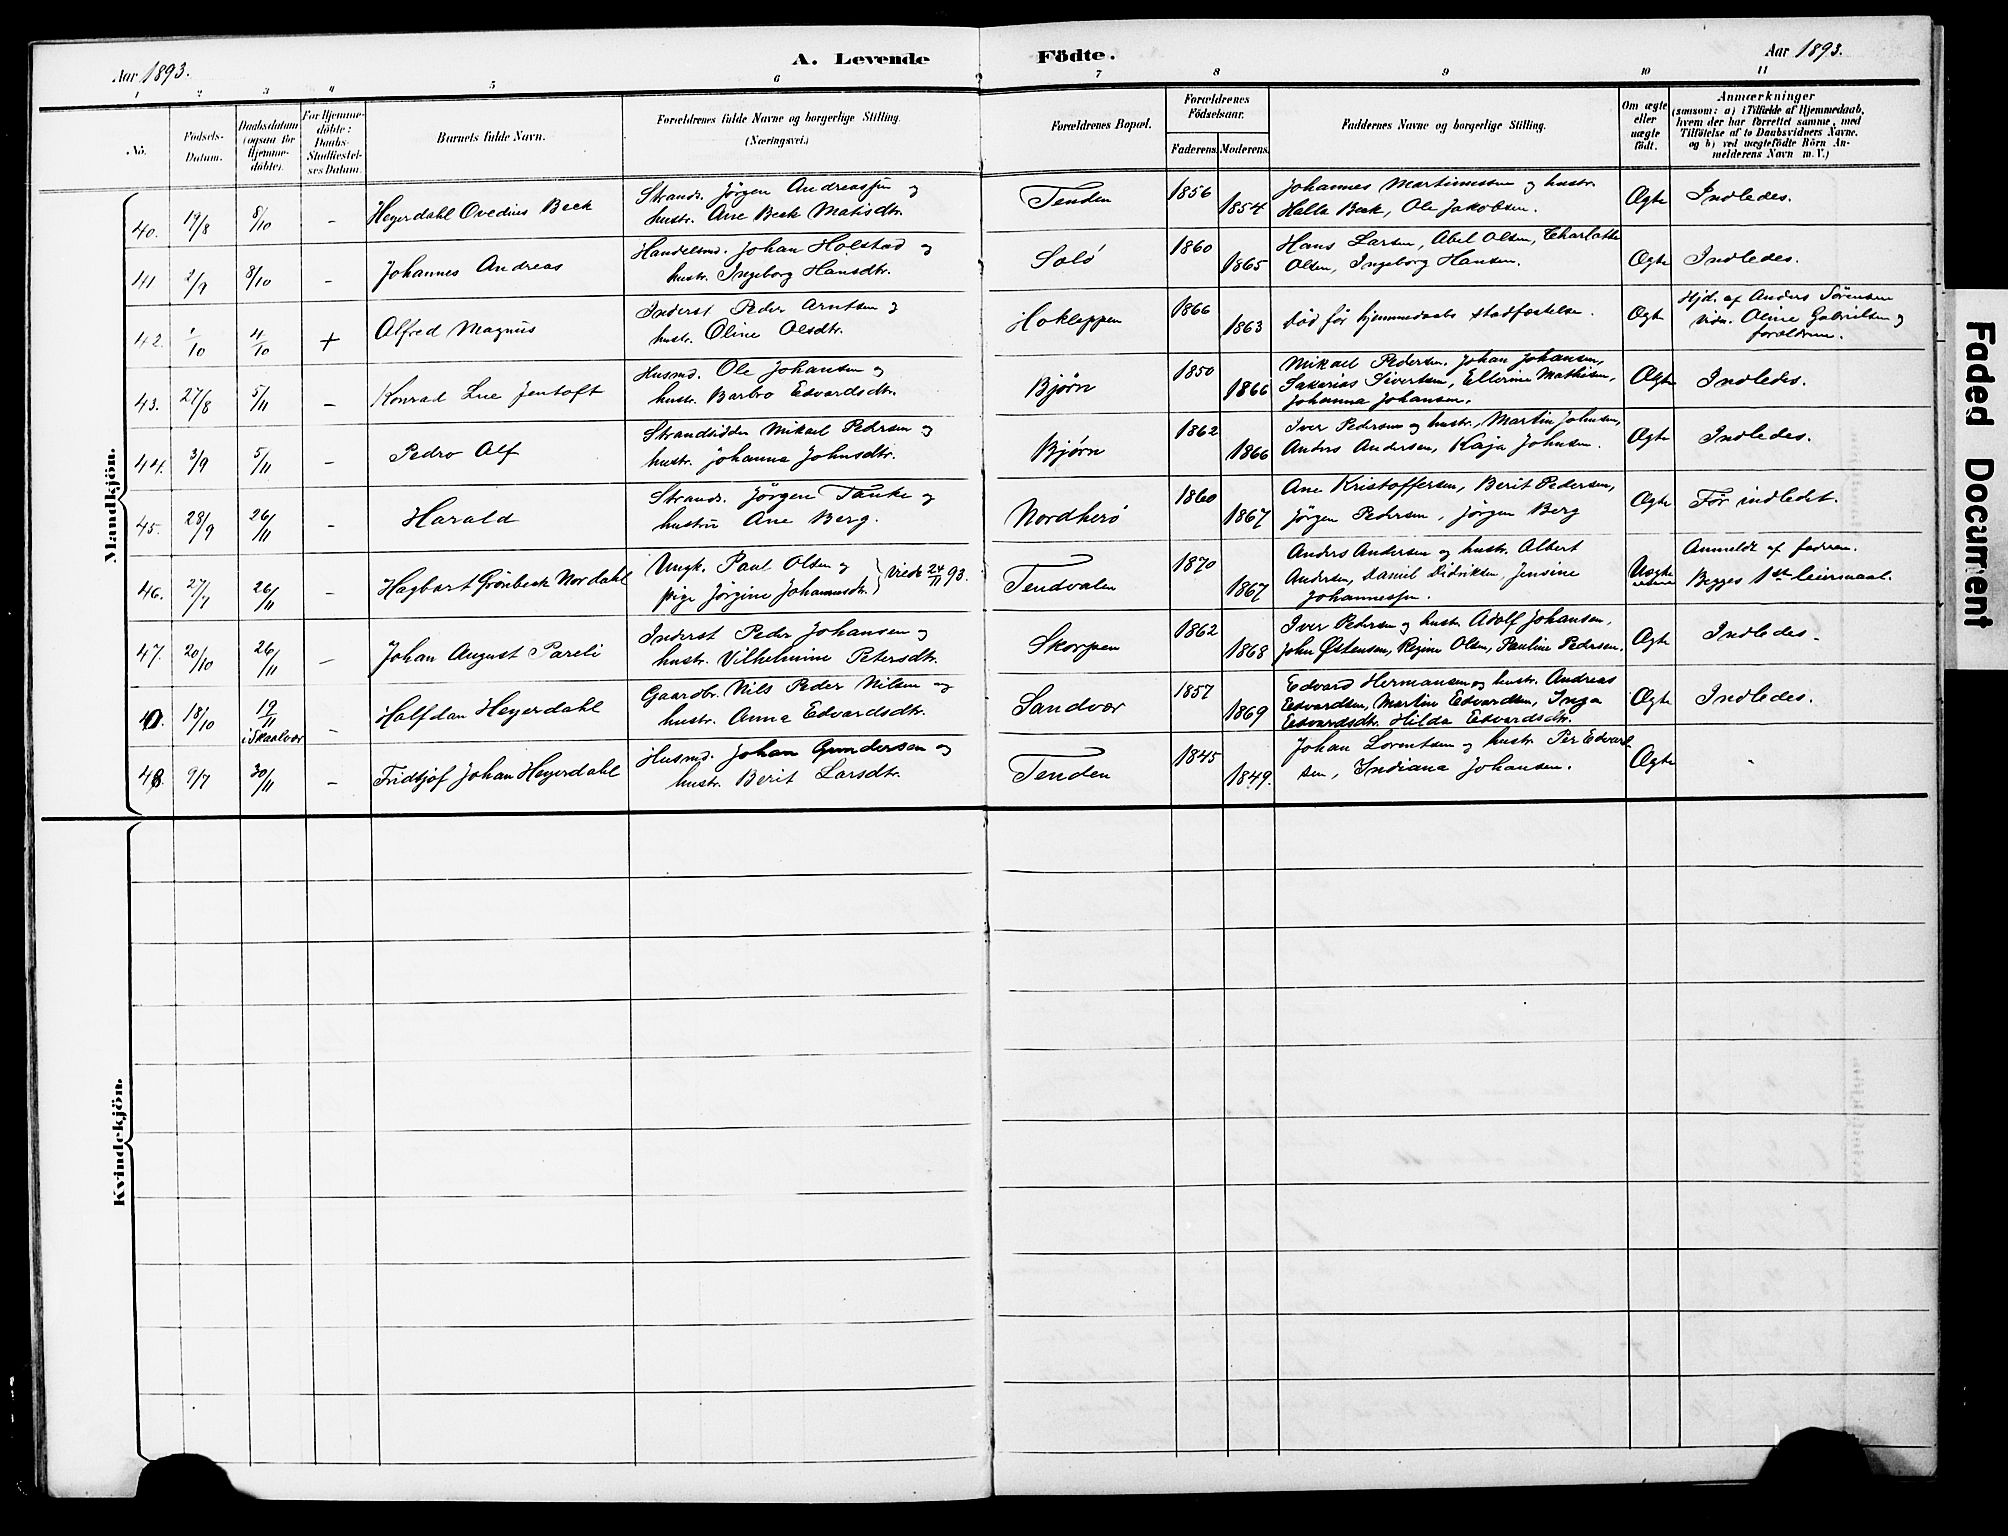 Aar 1893. A. Levende Födte. Aar 1893.
1 2 3 4 5 6 7 8 9 10 11
No.
Födsels-
Datum.
Daabsdatum
(ogsaa for
Hjemme-
döbte).
For Hjemme-
döbte:
Daabs-
Stadfæstel-
ses Datum.
Barnets fulde Navn.
Forældrenes fulde Navne og borgerlige Stilling.
(Næringsvei.)
Forældrenes Bopæl.
Forældrenes
Födselsaar.
Faderens. Moderens.
Faddernes Navne og borgerlige Stilling.
Om ægte
eller
uægte
födt.
Anmærkninger
(saasom: a) i Tilfælde af Hjemmedaab,
hvem der har forrettet samme, med
Tilföielse af to Daabsvidners Navne,
og b) ved uægtefödte Börn An-
melderens Navn m. V.)
Mandkjön.
40. 19/8 8/10 - Heyerdahl Ovedius Beck
Strands. Jörgen Andreassen og
hustr. Ane Beck Matisdtr.
Tenden 1856 1854
Johannes Martinussen og hustr.
Halla Beck, Ole Jakobsen.
Ægte Indledes.
41 2/9 8/10 - Johannes Andreas
Handelsmd. Johan Holstad og
hustr. Ingeborg Hansdtr.
Solö 1860 1865
Hans Larsen, Abel Olsen, Charlotte
Olsen, Ingeborg Hansen.
Ægte Indledes.
42. 1/10 4/10 + Alfred Magnus
Inderst Peder Arntsen og
hustr. Oline Olsdtr.
Hokleppen 1866 1863
Död för hjemmedaabs stadfestelse.
Ægte
Hjd. af Anders Sörensen
Vidn. Oline Gabrielsen og
forældrene.
43. 27/8 5/11 - Konrad Lue Jentoft
Husmd. Ole Johansen og
hustr. Barbro Edvardsdtr.
Bjørn 1850 1866
Mikael Pedersen. Johan Johansen,
Sakarias Sivertsen, Ellerine Mathisen,
Johanna Johansen.
Ægte Indledes.
44. 3/9 5/11 - Pedro Alf
Strandsidder Mikael Pedersen og
hustr. Johanna Johnsdtr.
Bjørn 1862 1866
Iver Pedersen og hustr., Martin Johnsen,
Anders Andersen, Kaja Johnsen.
Ægte Indledes.
45. 28/9 26/11 - Harald
Strands. Jörgen Tanke og
hustru Ane Berg.
Nordherö 1860 1867
Ane Kristoffersen, Berit Pedersen,
Jörgen Pedersen, Jörgen Berg
Ægte Før indledet.
46. 27/7 26/11 - Hagbart Grönbeck Nordahl
Ungk. Paul Olsen og
pige Jörgine Johannesdtr. } Viede 24/11 93.
Tendvalen 1870 1867
Anders Andersen og hustr. Albert
Andersen, Daniel Didriksen, Jensine
Johannessen.
Uægte
Anmeldt af faderen.
Begges 1ste leiermaal.
47. 20/10 26/11 - Johan August Pareli
Inderst Peder Johansen og
hustr. Vilhelmine Petersdtr.
Skorpen 1862 1868
Iver Pedersen og hustr. Adolf Johansen,
John Østensen, Regine Olsen, Pauline Pedersen.
Ægte Indledes.
18/10 19/11 i Skaalvær - Halfdan Heyerdahl
Gaardbr. Nils Peder Nilsen og
hustr. Anna Edvardsdtr.
Sandvær 1857 1869
Edvard Hermansen og hustr. Andreas
Edvardsen, Martin Edvardsen, Inga
Edvardsdtr. Hilda Edvardsdtr.
Ægte Indledes.
48. 9/7 30/11 - Fridtjof Johan Heyerdahl
Husmd. Johan Gundersen og
hustr. Berit Larsdtr.
Tenden 1845 1849.
Johan Lorentsen og hustr. Per Edvard-
sen, Indiana Johansen.
Ægte -
Kvindekjön.
Faded Document